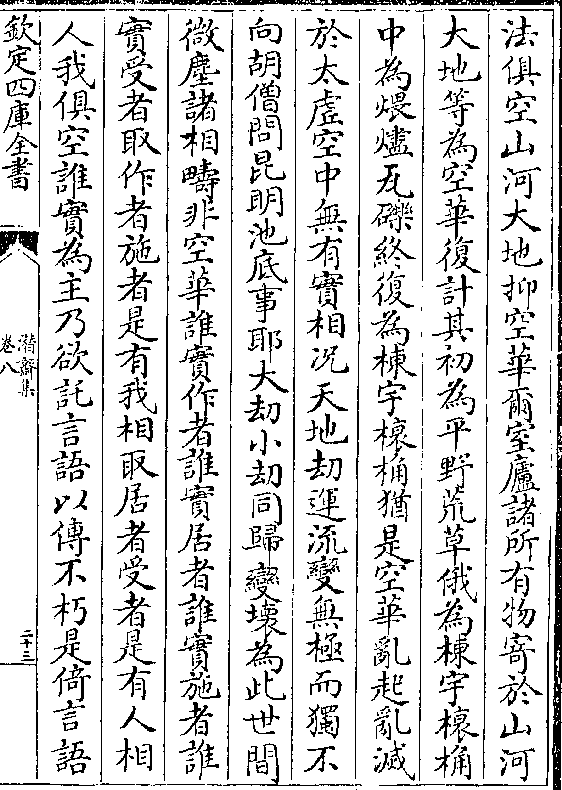 法俱空山河大地抑空華爾室廬諸所有物寄於山河
大地等為空華復計其初為平野荒草俄為棟宇榱桷
中為煨燼瓦礫終復為棟宇榱桷猶是空華亂起亂滅
於太虛空中無有實相况天地劫運流變無極而獨不
向胡僧問昆明池底事耶大劫小劫同歸變壞為此世間
微塵諸相疇非空華誰實作者誰實居者誰實施者誰
實受者取作者施者是有我相取居者受者是有人相
人我俱空誰實為主乃欲託言語以傳不朽是倚言語
欽定四庫全書
潛齋集
卷八
二十三